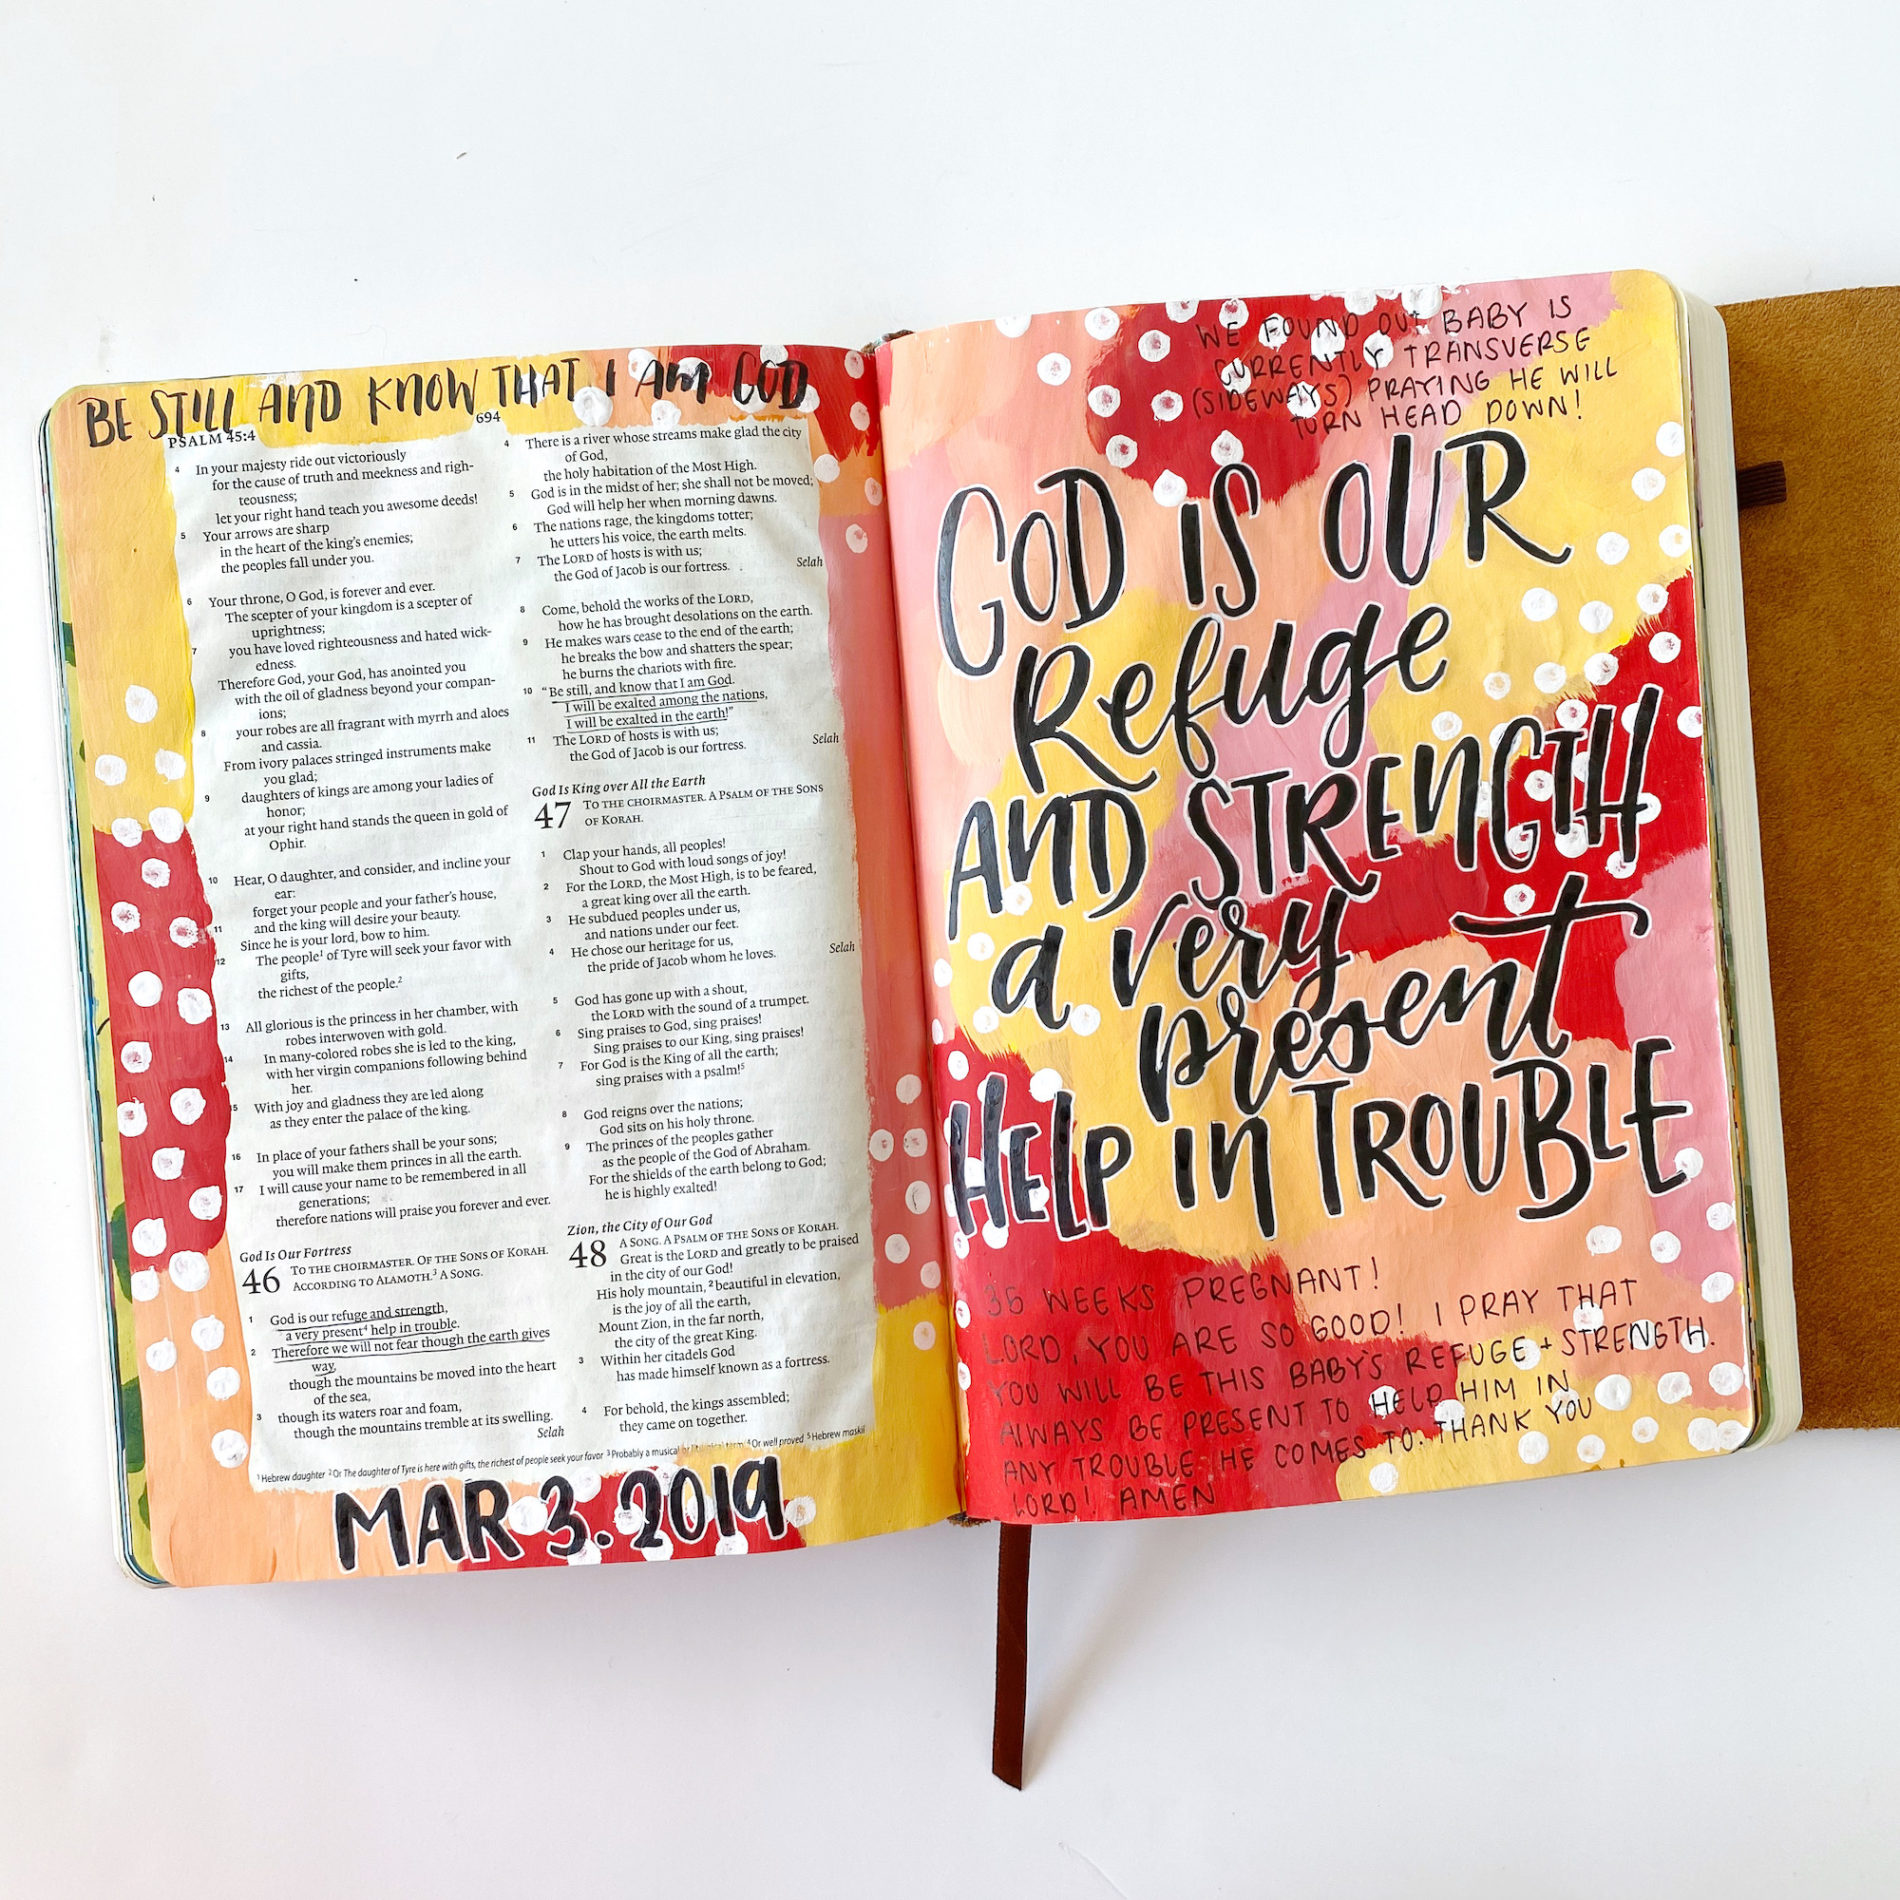 BE STILL AND KNOW THAT I AM GOD
694
PSALM 45:4
4 In your majesty ride out victoriously
for the cause of truth and meekness and righ-
teousness;
let your right hand teach you awesome deeds!
5 Your arrows are sharp
in the heart of the king's enemies;
the peoples fall under you.
6 Your throne, O God, is forever and ever.
The scepter of your kingdom is a scepter of
uprightness;
7 you have loved righteousness and hated wick-
edness.
Therefore God, your God, has anointed you
with the oil of gladness beyond your compan-
ions;
8 your robes are all fragrant with myrrh and aloes
and cassia.
From ivory palaces stringed instruments make
you glad;
9 daughters of kings are among your ladies of
honor;
at your right hand stands the queen in gold of
Ophir.
10 Hear, O daughter, and consider, and incline your
ear:
forget your people and your father's house,
11 and the king will desire your beauty.
Since he is your lord, bow to him.
12 The people¹ of Tyre will seek your favor with
gifts,
the richest of the people.²
13 All glorious is the princess in her chamber, with
robes interwoven with gold.
14 In many-colored robes she is led to the king,
with her virgin companions following behind
her.
15 With joy and gladness they are led along
as they enter the palace of the king.
16 In place of your fathers shall be your sons;
you will make them princes in all the earth.
17 I will cause your name to be remembered in all
generations;
therefore nations will praise you forever and ever.
God Is Our Fortress
46 TO THE CHOIRMASTER. OF THE SONS OF KORAH.
ACCORDING TO ALAMOTH.³ A SONG.
1 God is our refuge and strength,
a very present⁴ help in trouble.
2 Therefore we will not fear though the earth gives
way,
though the mountains be moved into the heart
of the sea,
3 though its waters roar and foam,
though the mountains tremble at its swelling.
Selah
4 There is a river whose streams make glad the city
of God,
the holy habitation of the Most High.
5 God is in the midst of her; she shall not be moved;
God will help her when morning dawns.
6 The nations rage, the kingdoms totter;
he utters his voice, the earth melts.
7 The LORD of hosts is with us;
the God of Jacob is our fortress. Selah
8 Come, behold the works of the LORD,
how he has brought desolations on the earth.
9 He makes wars cease to the end of the earth;
he breaks the bow and shatters the spear;
he burns the chariots with fire.
10 "Be still, and know that I am God.
I will be exalted among the nations,
I will be exalted in the earth!"
11 The LORD of hosts is with us;
the God of Jacob is our fortress. Selah
God Is King over All the Earth
47 TO THE CHOIRMASTER. A PSALM OF THE SONS
OF KORAH.
1 Clap your hands, all peoples!
Shout to God with loud songs of joy!
2 For the LORD, the Most High, is to be feared,
a great king over all the earth.
3 He subdued peoples under us,
and nations under our feet.
4 He chose our heritage for us,
the pride of Jacob whom he loves. Selah
5 God has gone up with a shout,
the LORD with the sound of a trumpet.
6 Sing praises to God, sing praises!
Sing praises to our King, sing praises!
7 For God is the King of all the earth;
sing praises with a psalm!⁵
8 God reigns over the nations;
God sits on his holy throne.
9 The princes of the peoples gather
as the people of the God of Abraham.
For the shields of the earth belong to God;
he is highly exalted!
Zion, the City of Our God
48 A SONG. A PSALM OF THE SONS OF KORAH.
Great is the LORD and greatly to be praised
in the city of our God!
His holy mountain, ²beautiful in elevation,
is the joy of all the earth,
Mount Zion, in the far north,
the city of the great King.
3 Within her citadels God
has made himself known as a fortress.
4 For behold, the kings assembled;
they came on together.
¹Hebrew daughter ²Or The daughter of Tyre is here with gifts, the richest of people seek your favor ³Probably a musical ⁴Or well proved ⁵Hebrew maskil
MAR 3. 2019
WE FOUND OUT BABY IS
CURRENTLY TRANSVERSE
(SIDEWAYS) PRAYING HE WILL
TURN HEAD DOWN!
GOD IS OUR
Refuge
AND STRENGTH
a very
present
HELP IN TROUBLE
36 WEEKS PREGNANT!
LORD, YOU ARE SO GOOD! I PRAY THAT
YOU WILL BE THIS BABY'S REFUGE + STRENGTH.
ALWAYS BE PRESENT TO HELP HIM IN
ANY TROUBLE HE COMES TO. THANK YOU
LORD! AMEN